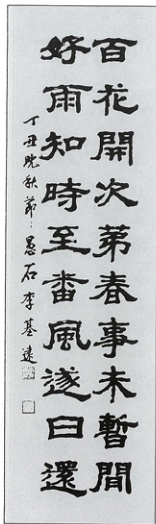 百花開次第春事未暫閒
好雨知時至番風逐日還
丁丑晩秋節 愚石 李基遠